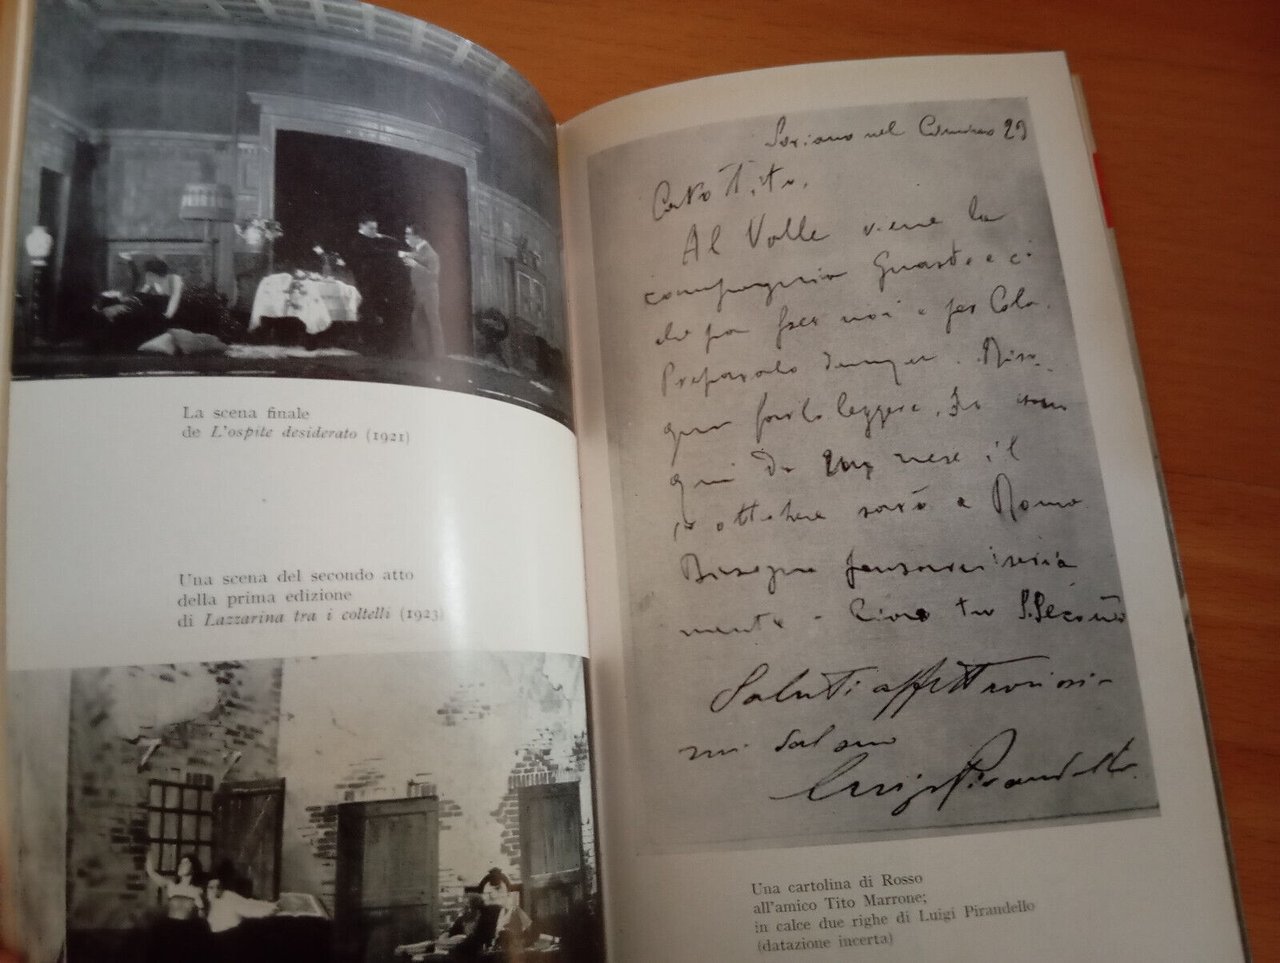 La scena finale
de L'ospite desiderato (1921)
Una scena del secondo atto
della prima edizione
di Lazzarina tra i coltelli (1923)
Soriano nel Cimino 29
Caro Tito,
Al Valle viene la
compagnia Guasti e ci
da fare noi e per Cola.
Preparalo dunque. Biso-
gna farlo leggere. Io sono
qui da un mese il
ottobre sarò a Roma
Bisogna pensarci seria
mente. Ciao tuo S.Secondo
Saluti affettuosissi-
mi dal suo
Luigi Pirandello
Una cartolina di Rosso
all'amico Tito Marrone;
in calce due righe di Luigi Pirandello
(datazione incerta)